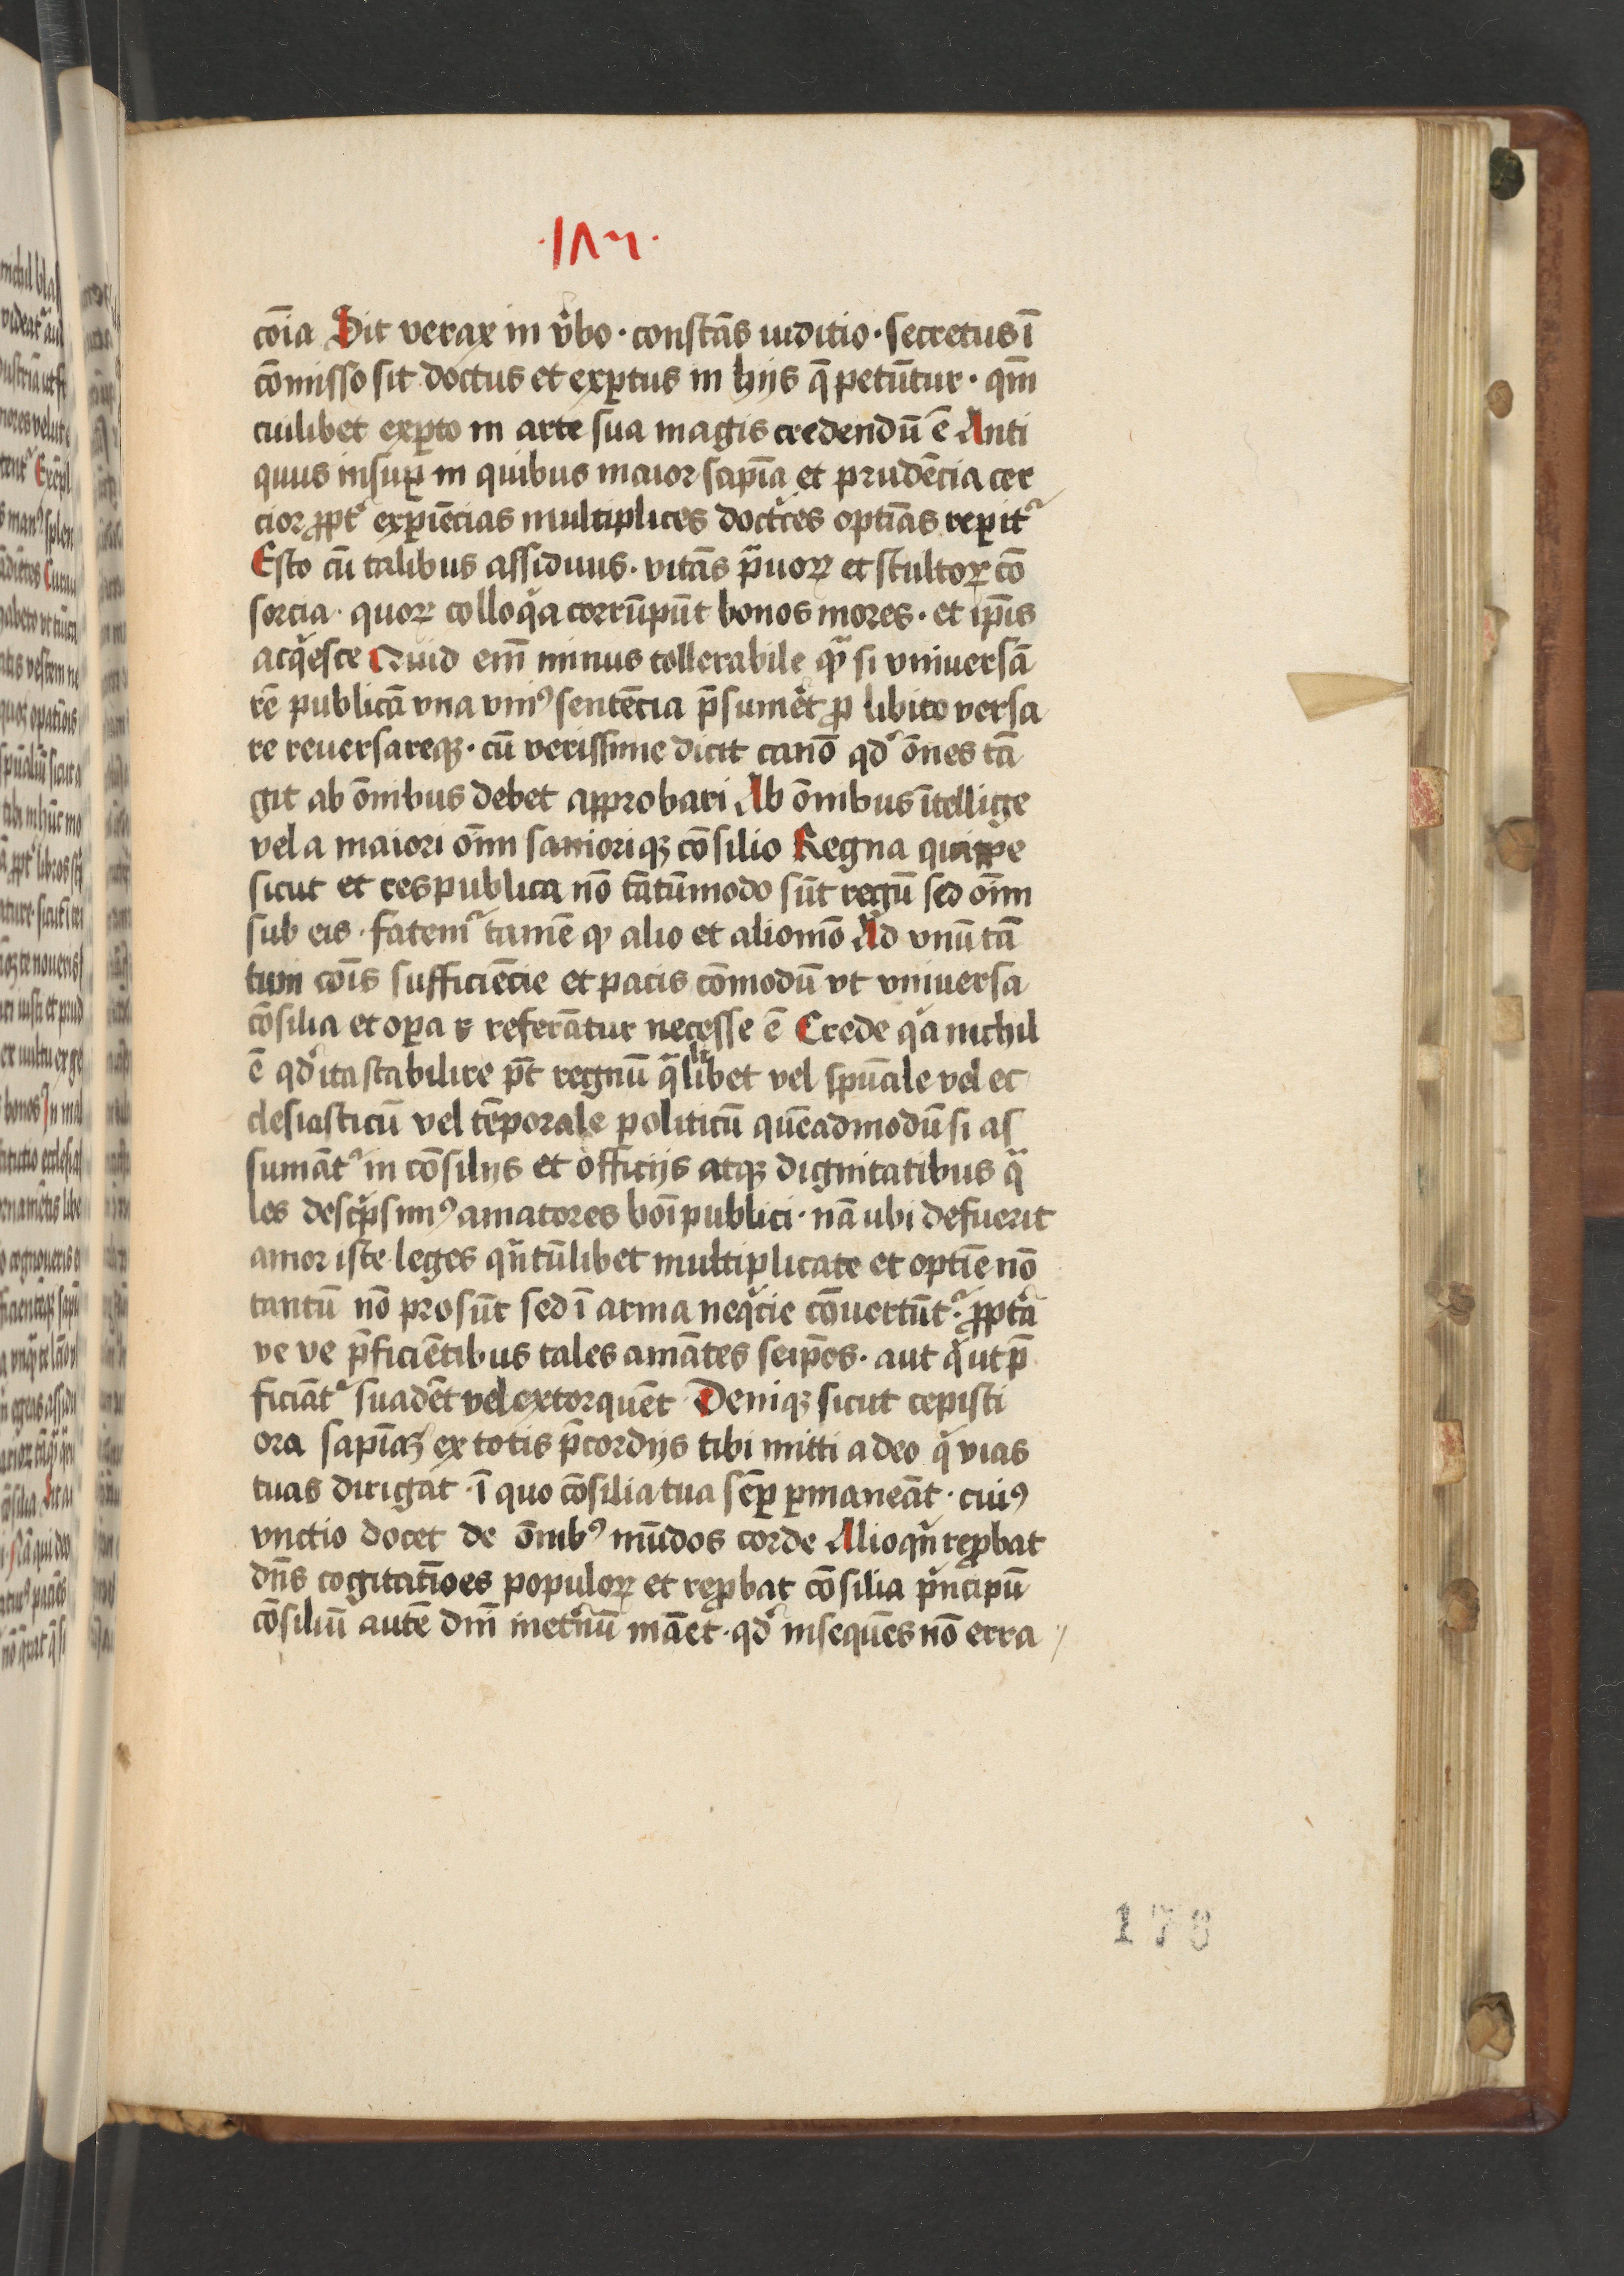 ·1Λ7·
cōia Sit verax in v̄bo · constās iuditio · secretus ī
cōmisso sit doctus et exꝑtus in hijs q̄ petūtur · qm̄
cuilibet exꝑto in arte sua magis credendū ē Anti
quus insuꝑ in quibus maior sapīa et prudēcia cer
cior ꝓpt᷑ exꝑiēcias multiplices doctͬces optīas reꝑit᷑
Esto cū talibus assiduus · vitās pͣuoꝝ et stultoꝝ cō
sorcia · quoꝝ colloqͥa corrūpūt bonos mores · et ip̄is
acqͥesce Quid em̄ minus tollerabile qͣ si vniuersā
rē publicā vna vniꝰ sentēcia p̄sumēt ꝓ libito versa
re reuersareqꝫ · cū verissime dicit canō qd᷑ ōnes tā
git ab ōnibus debet approbari Ab ōnibus ītellige
vel a maiori oīm sanioriqꝫ cōsilio Regna quippe
sicut et res publica nō tātūmodo sūt regū sed oīm
sub eis · fatem᷑ tamē ꝙ alio et alio mō Ad vnū tā
tum cōis sufficiēcie et pacis cōmodū vt vniuersa
cōsilia et oꝑa r referātur necesse ē Crede qͥa nichil
ē qd᷑ ita stabilire pōt regnū qͣlibet vel spūale vel ec
clesiasticū vel tēporale politicū quēadmodū si as
sumāt᷑ in cōsilijs et officijs atqꝫ dignitatibus qͣ
les descͥpsimꝰ amatores boni publici · nā ubi defuerit
amor iste leges qͣntūlibet multiplicate et optīe nō
tantū nō prosūt sed ī arma neqͥcie cōuertūt᷑ · ꝓpt᷑a
ve ve p̄ficiētibus tales amātes seip̄os · aut qͥ ut p̄
ficiāt᷑ suadēt vel extorquēt · Deniqꝫ sicut cepisti
ora sapīaꝫ ex totis p̄cordijs tibi mitti a deo qͥ vias
tuas dirigat · ī quo cōsilia tua semꝑ ꝑmaneāt · cuiꝰ
vnctio docet de ōnibꝰ mūdos corde Alioqͥn reꝓbat
dn̄s cogitatīoes populoꝝ et reꝓbat cōsilia pͥncipū
cōsiliū autē dn̄i in et᷑nū manēt · qd᷑ insequēs nō erra
178